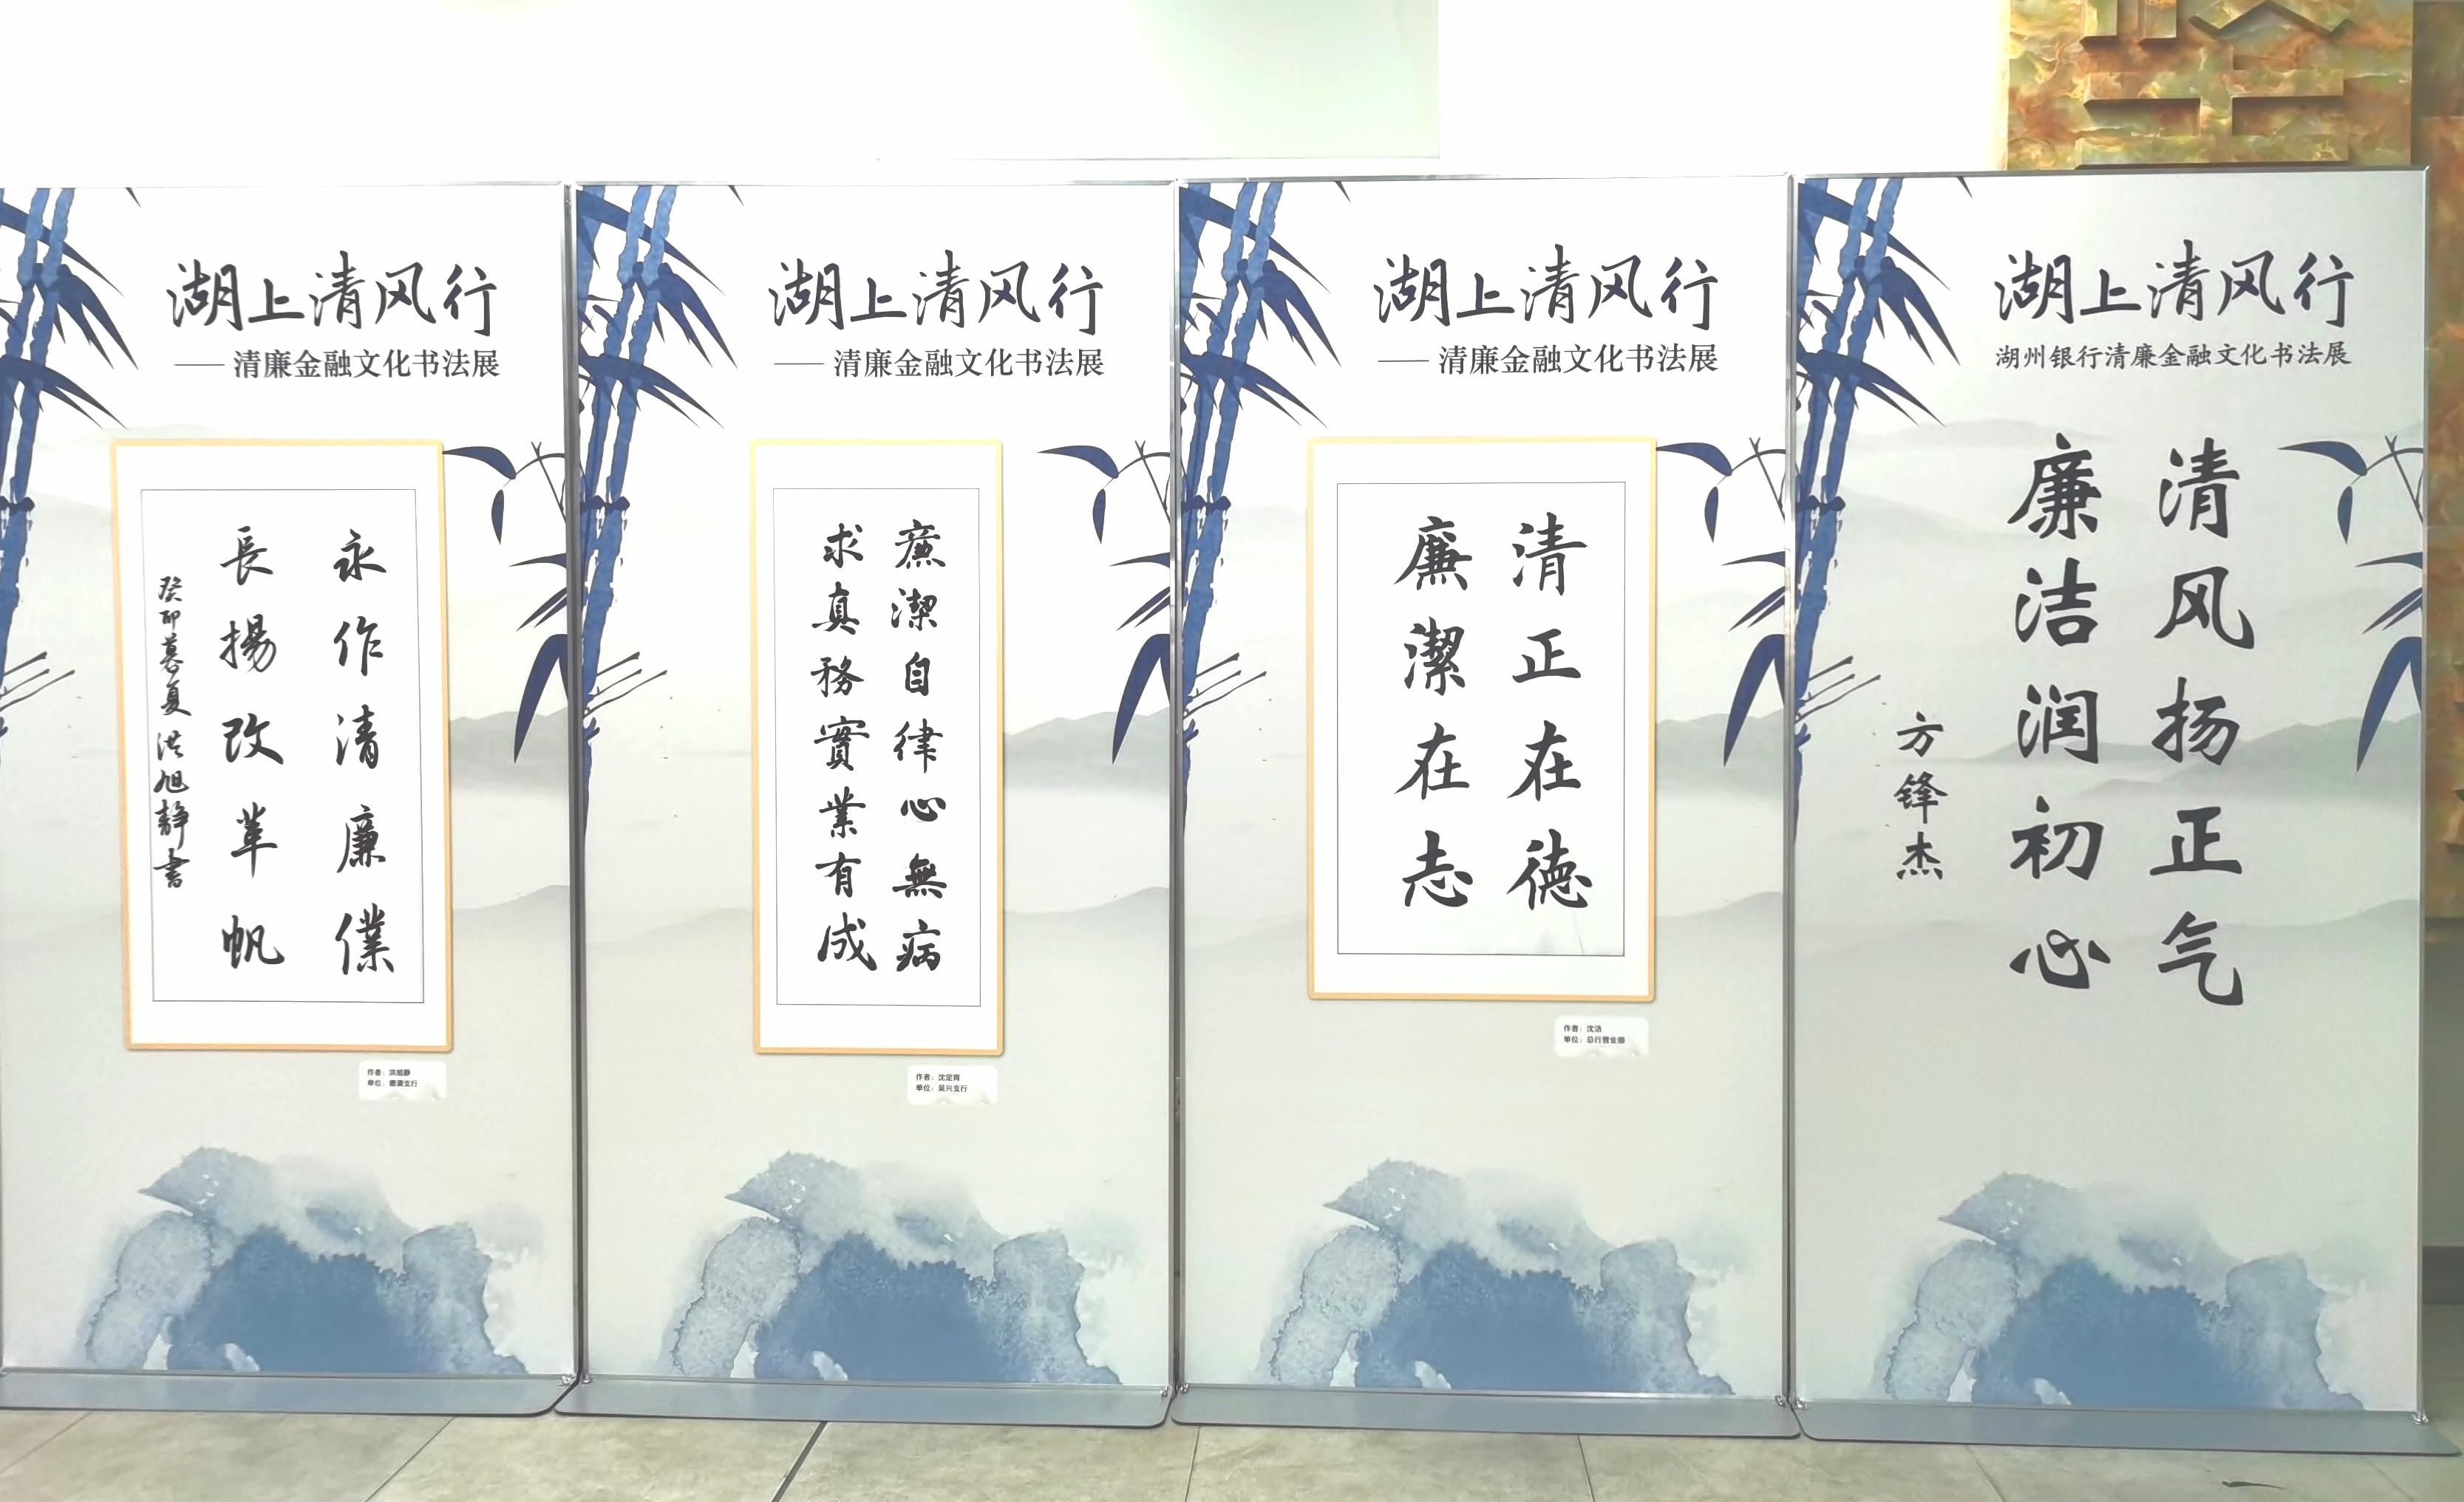 湖上清风行
—— 清廉金融文化书法展
永作清廉僕
長揚改革帆
癸卯暮夏 洪旭静書
作者：洪旭静
单位：德清支行
湖上清风行
—— 清廉金融文化书法展
廉潔自律心無病
求真務實業有成
作者：沈定宵
单位：吴兴支行
湖上清风行
—— 清廉金融文化书法展
清正在德
廉潔在志
作者：沈洁
单位：总行营业部
湖上清风行
湖州银行清廉金融文化书法展
清风扬正气
廉洁润初心
方锋杰